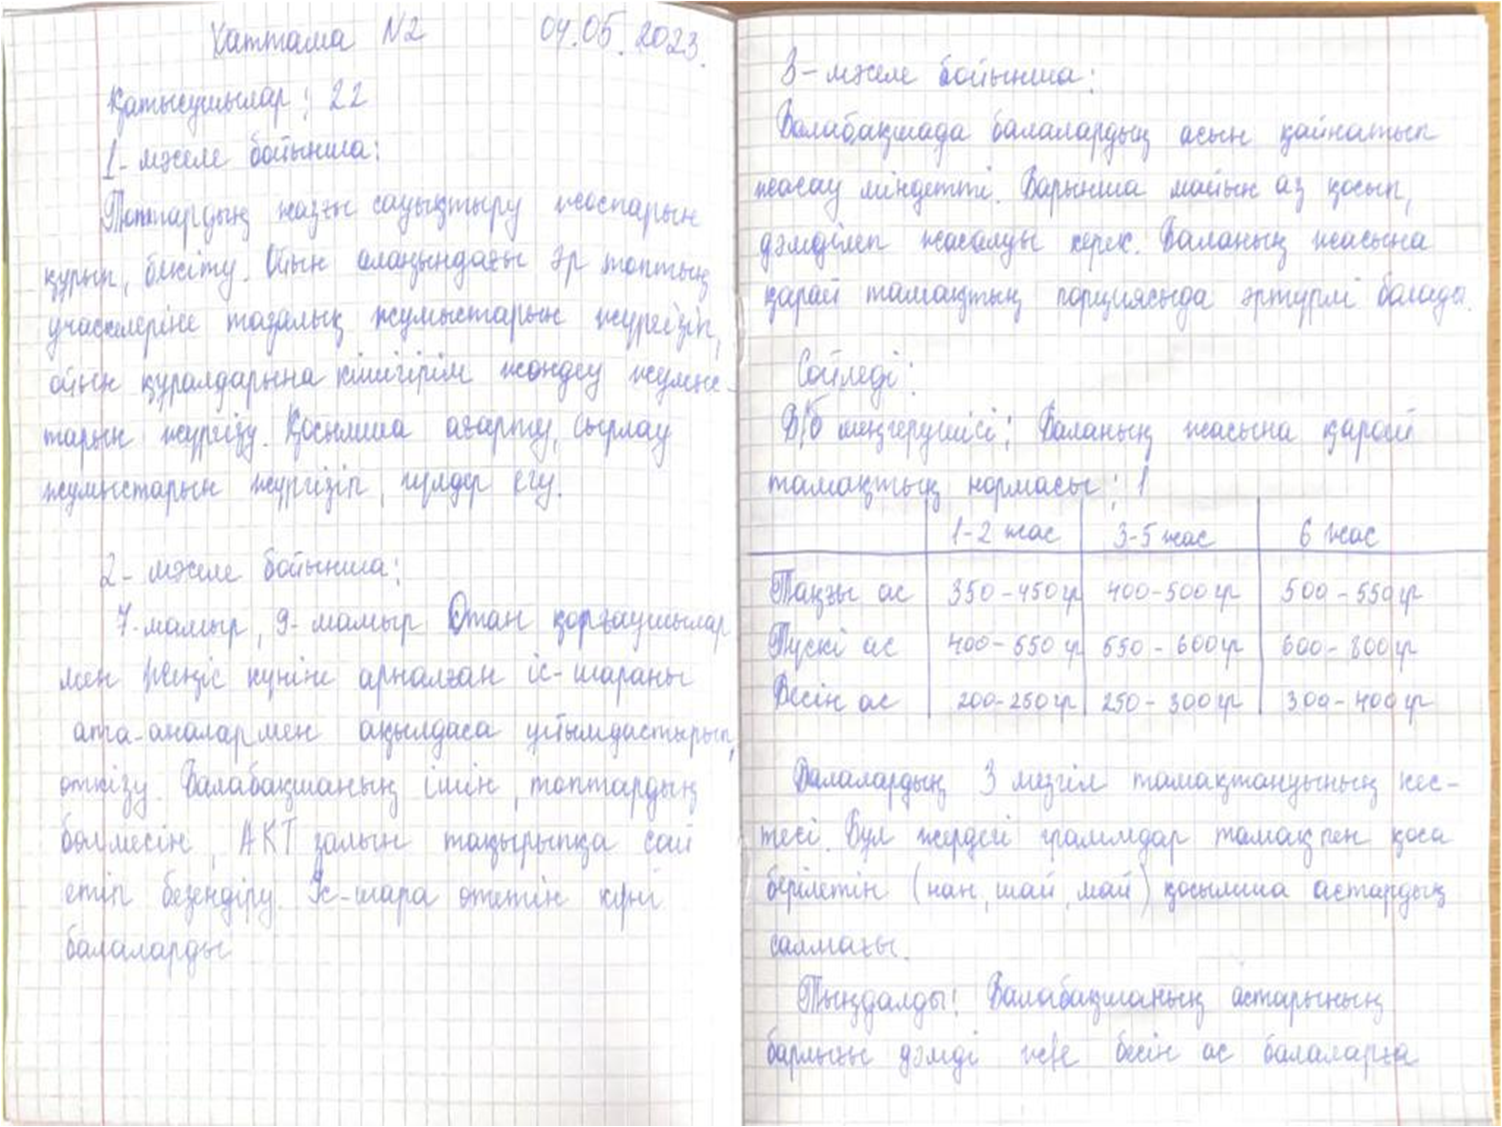 Хаттама N2 04.05.2023.
Қатысушылар: 22
1-мәселе бойынша:
Топтардың жазғы сауықтыру жоспарын
құрып, бекіту. Ойын алаңындағы әр топтың
учаскелеріне тазалық жұмыстарын жүргізіп,
ойын құралдарына кішігірім жөндеу жұмыс-
тарын жүргізу. Қосымша ағарту, сырлау
жұмыстарын жүргізіп, гүлдер егу.
2-мәселе бойынша:
7-мамыр, 9-мамыр Отан қорғаушылар
мен Жеңіс күніне арналған іс-шараны
ата-аналармен ақылдаса ұйымдастырып,
өткізу. Балабақшаның ішін, топтардың
бөлмесін, АКТ залын тақырыпқа сай
етіп безендіру. Іс-шара өтетін күні
балаларды
3-мәселе бойынша:
Балабақшада балалардың асын қайнатып
жасау міндетті. Барынша майын аз қосып,
дәмділеп жасалуы керек. Баланың жасына
қарай тамақтың порциясыда әртүрлі болады.
Сөйледі:
Б/б меңгерушісі: Баланың жасына қарай
тамақтың нормасы: 1
1-2 жас 3-5 жас 6 жас
Таңғы ас 350-450гр 400-500гр 500-550гр
Түскі ас 400-550гр 550-600гр 600-800гр
Бесін ас 200-250гр 250-300гр 300-400гр
Балалардың 3 мезгіл тамақтануының кес-
тесі. Бұл жердегі граммдар тамақпен қоса
берілетін (нан, шай, май) қосымша астардың
салмағы.
Тыңдалды: Балабақшаның астарының
барлығы дәмді және бесін ас балаларға